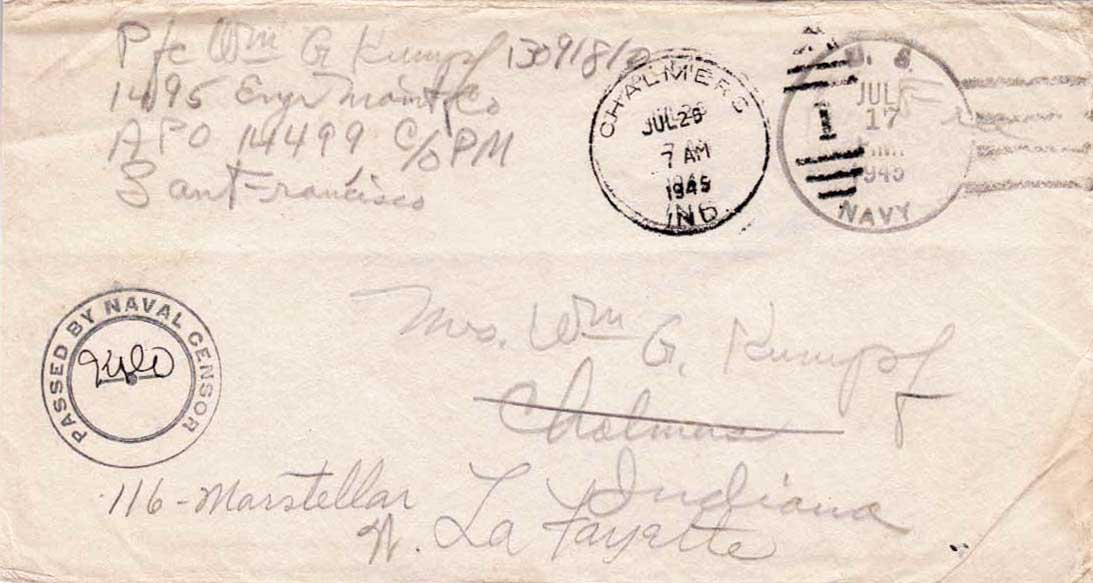 Pfc Wm G Kumpf 1309181
1495 Engr Maint Co
APO 14499 C/o PM
San Francisco
CHALMERS
JUL 26
7 AM
1945
IND
U. S.
JUL
17
1945
NAVY
1
PASSED BY NAVAL CENSOR
Mrs. Wm G. Kumpf
Chalmers
Indiana
116 - Marstellar
W. La Fayette